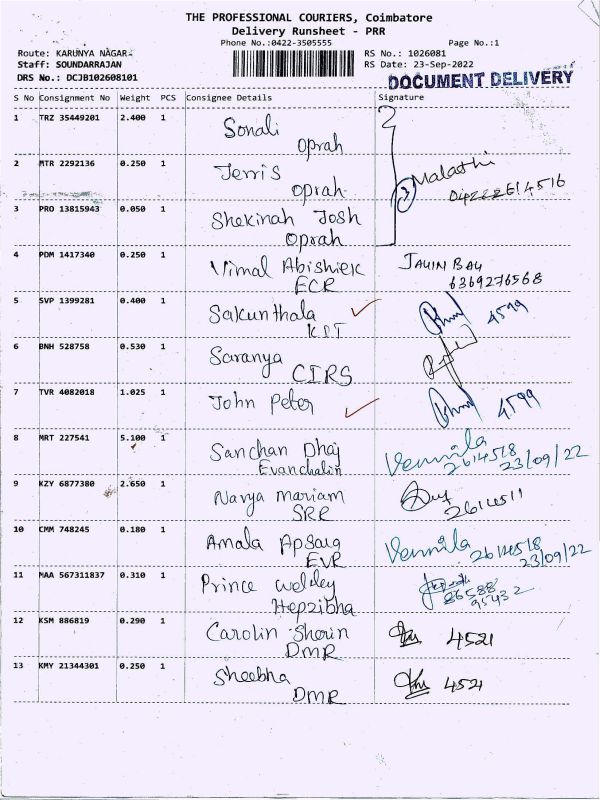 THE PROFESSIONAL COURIERS, Coimbatore
Delivery Runsheet - PRR
Phone No.:0422-3505555 Page No.:1
Route: KARUNYA NAGAR RS No.: 1026081
Staff: SOUNDARRAJAN RS Date: 23-Sep-2022
DRS No.: DCJB102608101 DOCUMENT DELIVERY
S No Consignment No Weight PCS Consignee Details Signature
1 TRZ 35449201 2.400 1 Sonali
Oprah
2 MTR 2292136 0.250 1 Jerris Malathi
Oprah
3 PRO 13815943 0.050 1 Shekinah Josh
Oprah
4 PDM 1417340 0.250 1 Vimal Abishiek
ECR 6369276568
5 SVP 1399281 0.400 1 Sakunthala 4599
KPT
6 BNH 528758 0.530 1 Saranya
CIRS
7 TVR 4082018 1.025 1 John Peter 4599
8 MRT 227541 5.100 1 Sanchan Dhaj Vennila
Evanchalin 2614518 23/09/22
9 KZY 6877380 2.650 1 Navya mariam
SRR 2614511
10 CMM 748245 0.180 1 Amala Vennila 2614518
EVR 23/09/22
11 MAA 567311837 0.310 1 Prince welsley 86588
Hepzibha 95432
12 KSM 886819 0.290 1 Carolin Sherin 4521
DMR
13 KMY 21344301 0.250 1 Sheebha 4521
DMR